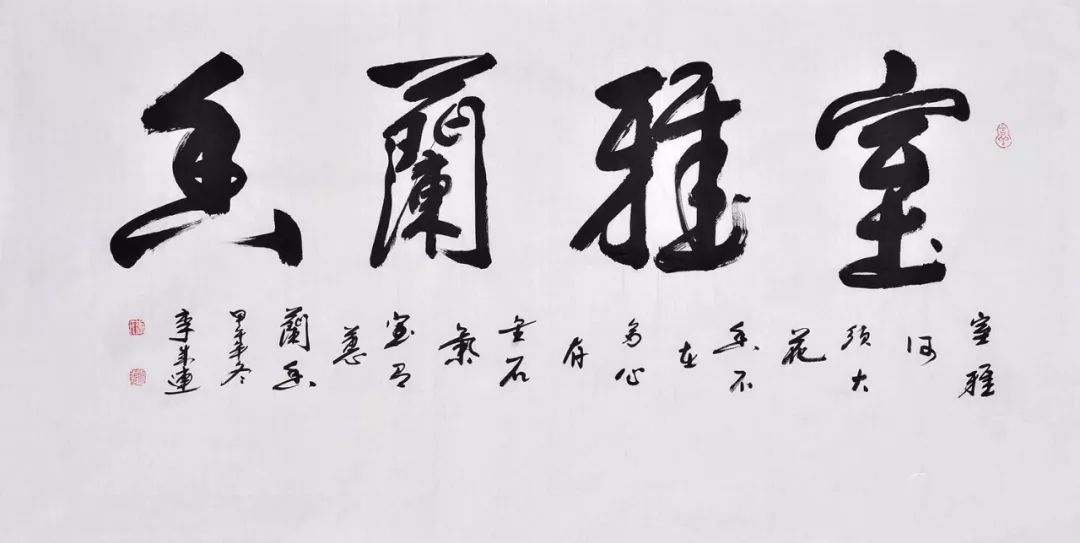 室雅蘭香
室雅
何
须大
花
香不
在
多心
存
金石
氣
室有
蕙
蘭香
甲午年冬
李連